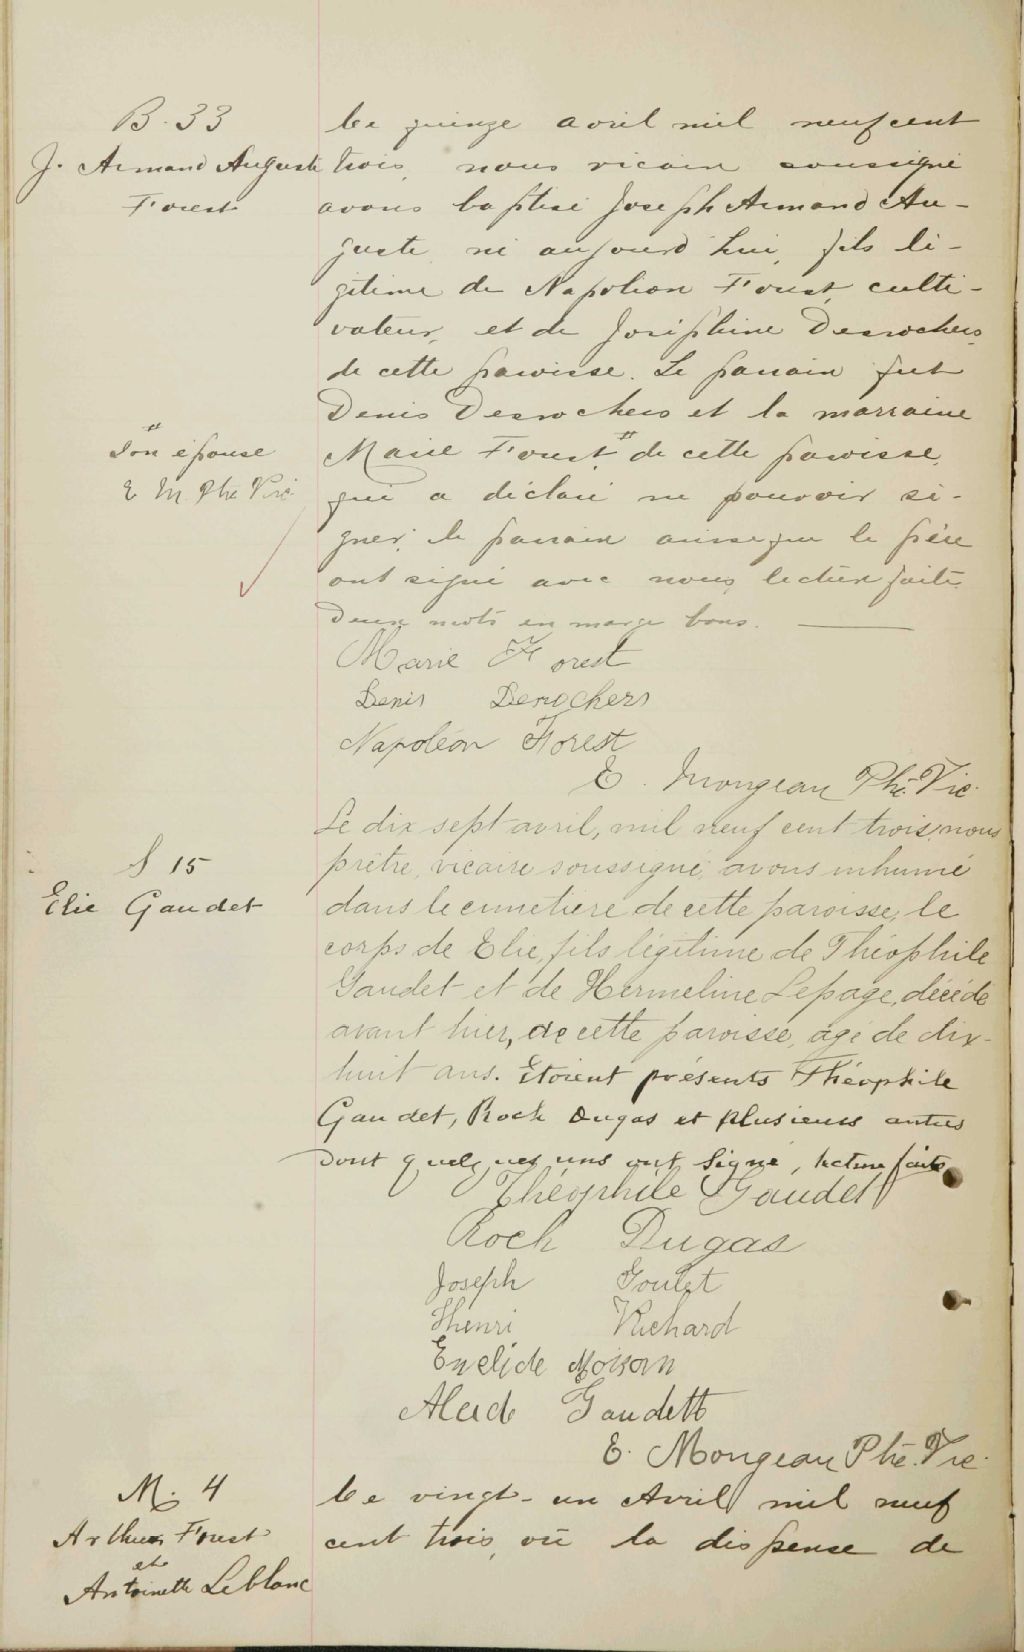 B. 33
J. Armand Auguste
Forest
Le quinze avril mil neuf cent
trois, nous vicaire soussigné
avons baptisé Joseph Armand Au-
guste, né aujourd'hui, fils lé-
gitime de Napoléon Forest, culti-
vateur, et de Joséphine Desrochers,
de cette paroisse. Le parrain fut
Denis Desrochers et la marraine
Marie Forest # de cette paroisse,
qui a déclaré ne pouvoir si-
gner; le parrain ainsi que le père
ont signé avec nous, lecture faite.
Deux mots en marge bons.
#
son épouse
E M Ptre Vic
Marie Forest
Denis Derochers
Napoléon Forest
E. Mongeau Ptre. Vic.
S 15
Elie Gaudet
Le dix sept avril, mil neuf cent trois, nous
prêtre, vicaire soussigné, avons inhumé
dans le cimetière de cette paroisse, le
corps de Elie, fils légitime de Théophile
Gaudet et de Hermeline Lepage, décédé
avant hier, de cette paroisse, âgé de dix-
huit ans. Etoient présents Théophile
Gaudet, Roch Dugas et plusieurs autres
dont quelques uns ont signé, lecture faite
Théophile Gaudet
Roch Dugas
Joseph Goulet
Henri Richard
Euclide Moison
Alcide Gaudett
E. Mongeau Ptre. Vic.
M. 4
Arthur Forest
et
Antoinette Leblanc
Le vingt-un Avril mil neuf
cent trois, vû la dispense de